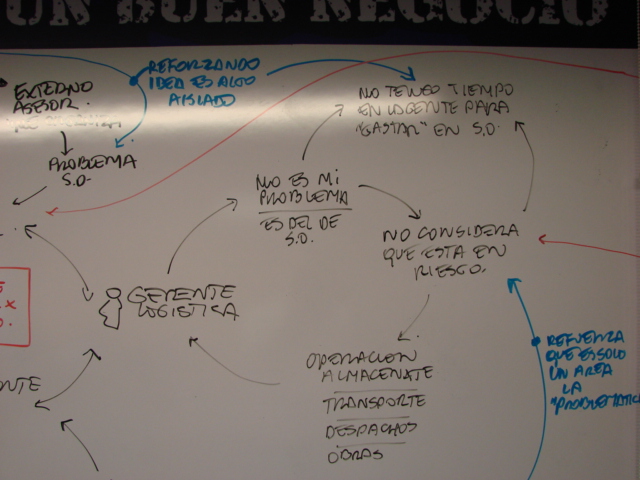 UN BUEN NEGOCIO
EXTERNO
ASESOR.
REFORZANDO
IDEA ES ALGO
AISLADO
PROBLEMA
S.O.
NO TENGO TIEMPO
EN LO GENTE PARA
"GASTAR" EN S.O.
NO ES MI
PROBLEMA
ES DEL DE
S.O.
NO CONSIDERA
QUE ESTA EN
RIESGO.
GERENTE
LOGISTICA
OPERACION
ALMACENXTE
TRANSPORTE
DESPACHOS
OBRAS
REFUERZA
QUE ES SOLO
UN AREA
LA
"PROBLEMATIC